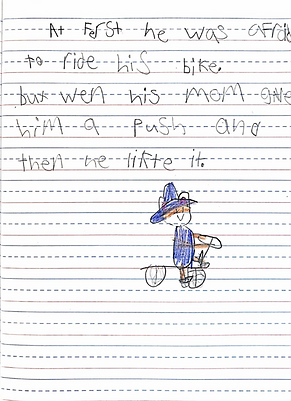 At ferst he was afrid
to ride his bike.
but wen his mom gave
him a push and
then he likte it.